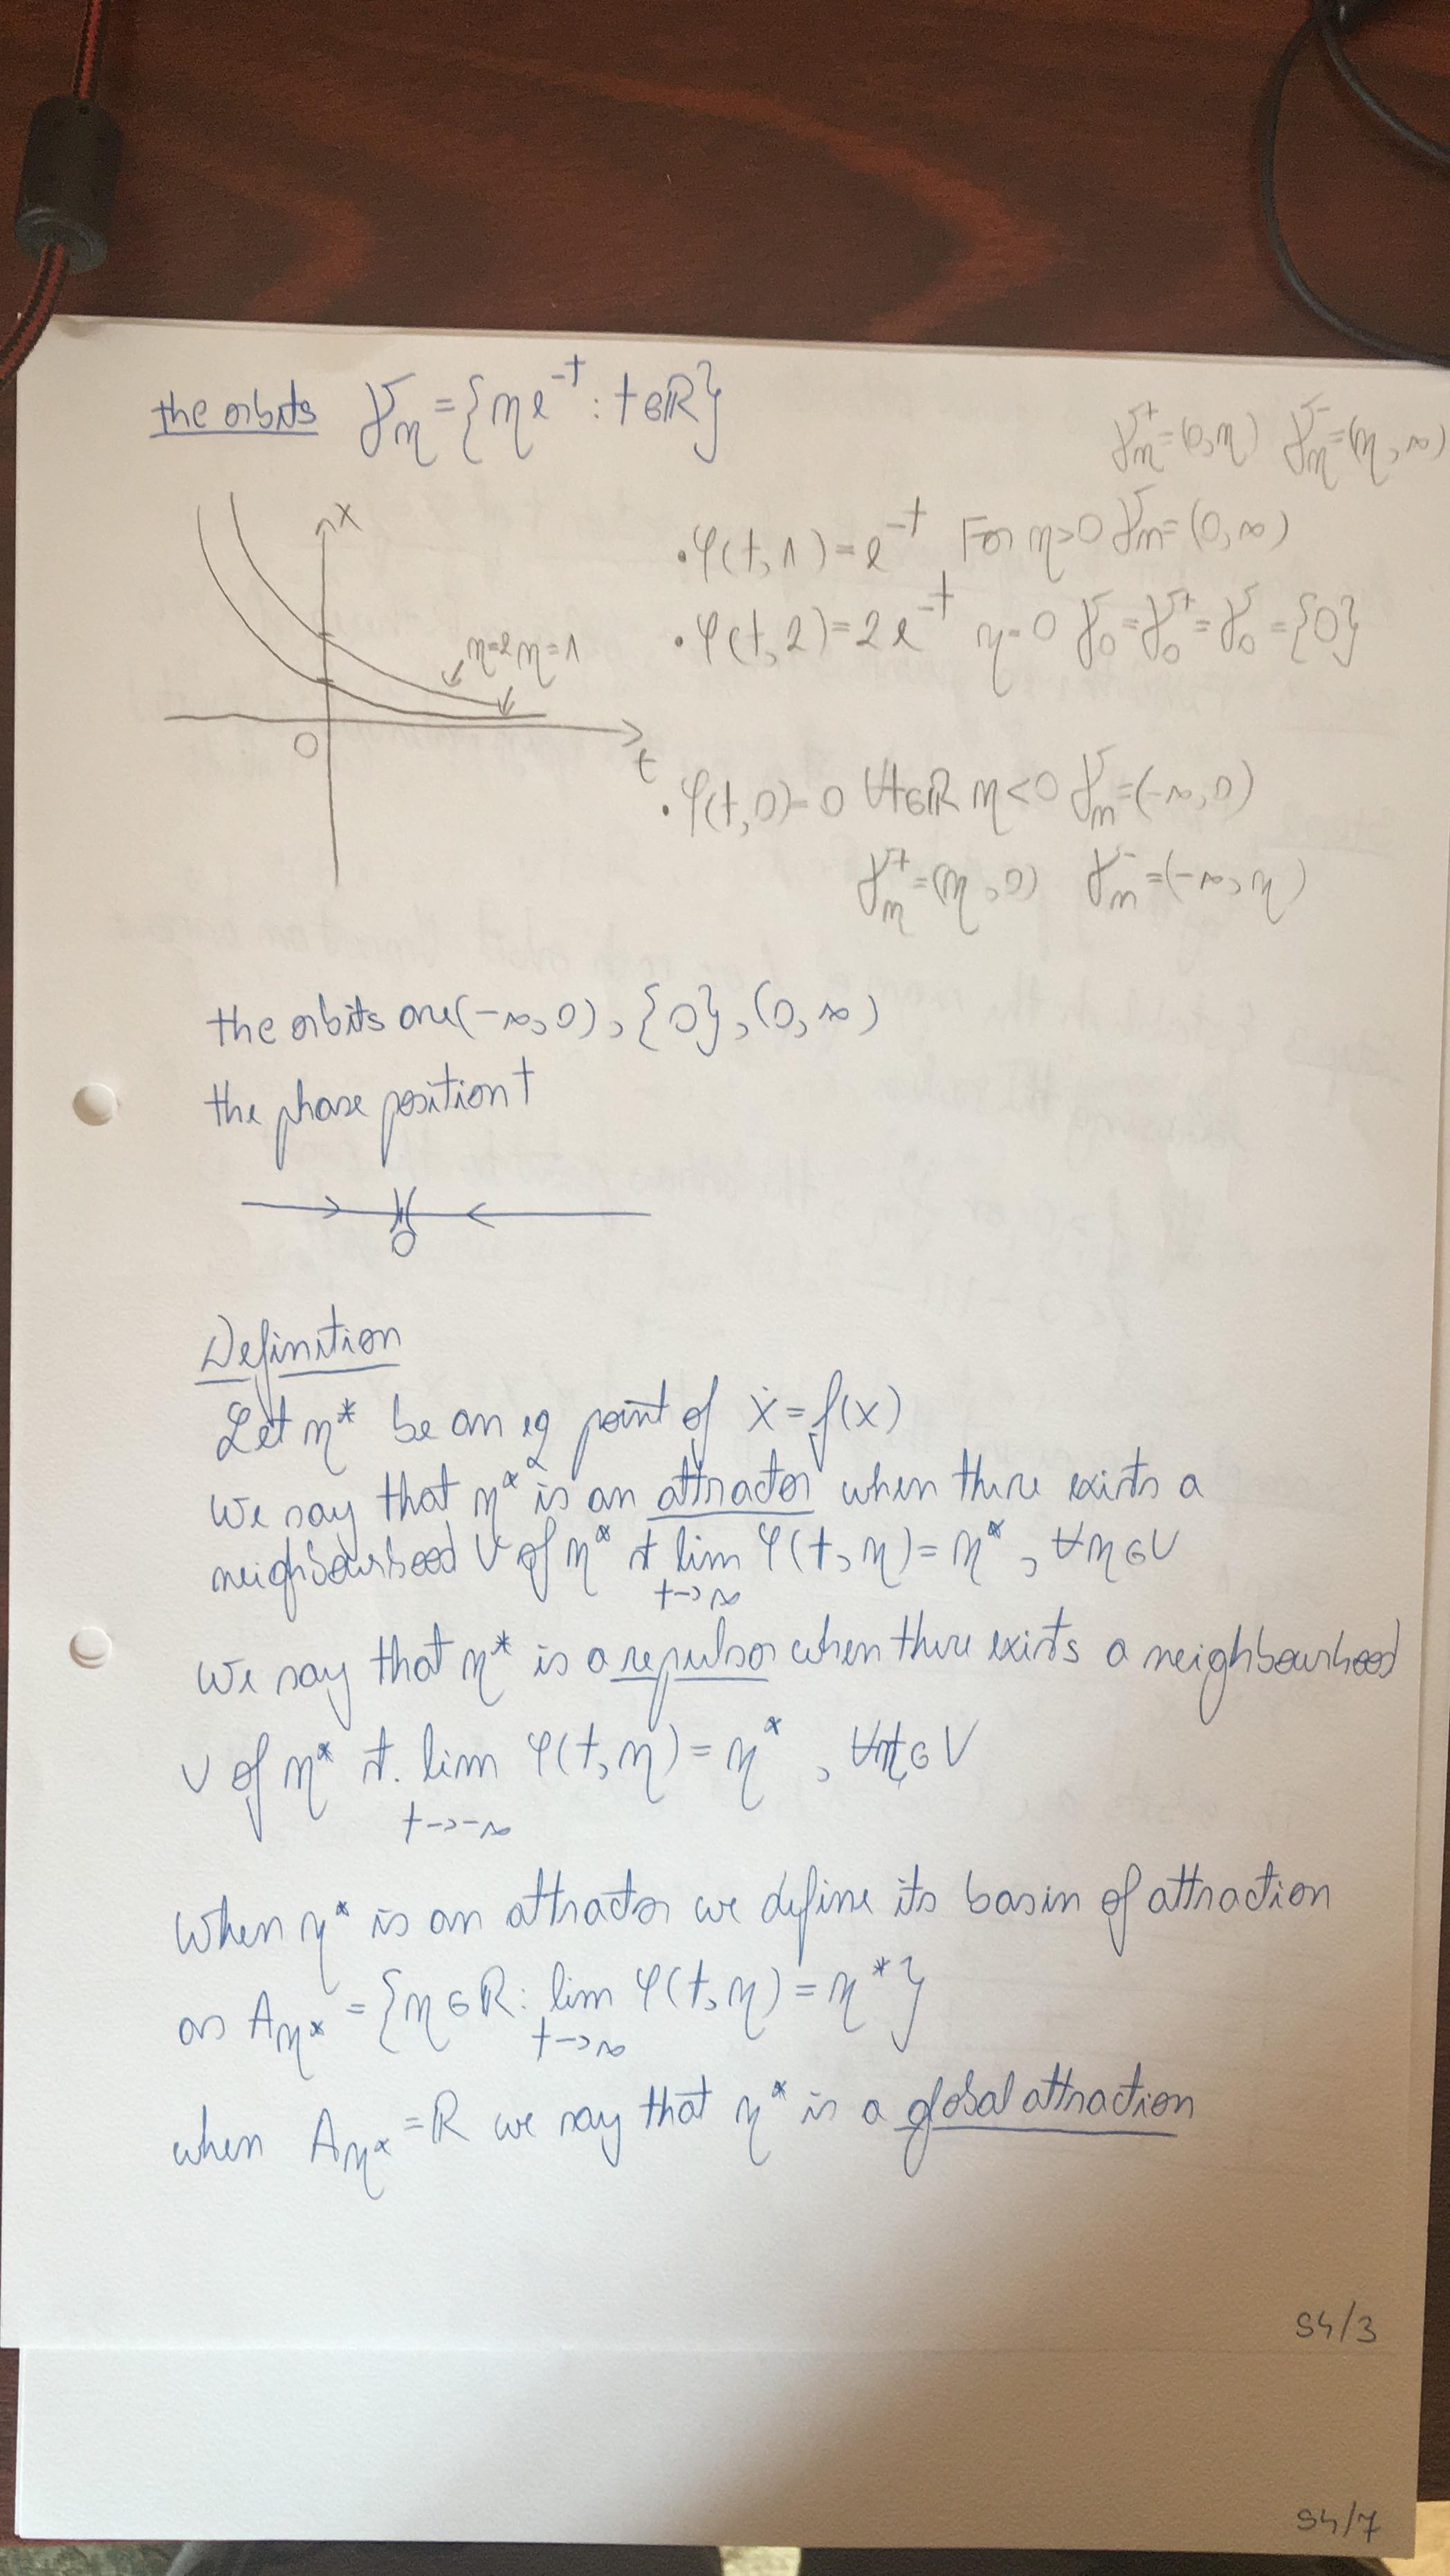 the orbits γη = {ηe^-t : t∈ℝ}
γη^+ = (0, η) γη^- = (η, ∞)
x
• φ(t, 1) = e^-t For η>0 γη = (0, ∞)
• φ(t, 2) = 2e^-t η=0 γ0 = γ0^+ = γ0^- = {0}
η=2 η=1
0
t
• φ(t, 0) = 0 ∀t∈ℝ η<0 γη = (-∞, 0)
γη^+ = (η, 0) γη^- = (-∞, η)
the orbits are (-∞, 0), {0}, (0, ∞)
the phase position t
0
Definition
Let η* be an eq point of ẋ = f(x)
We say that η* is an attractor when there exists a
neighbourhood V of η* st lim φ(t, η) = η*, ∀η∈V
t->∞
We say that η* is a repulsor when there exists a neighbourhood
V of η* st. lim φ(t, η) = η*, ∀η∈V
t->-∞
When η* is an attractor we define its basin of attraction
as Aη* = {η∈ℝ : lim φ(t, η) = η*}
t->∞
when Aη* = ℝ we say that η* is a global attraction
S4/3
S4/7